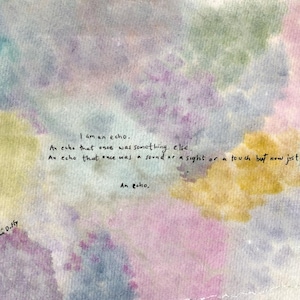 I am an echo.
An echo that once was something else
An echo that once was a sound or a sight or a touch but now just
An echo.